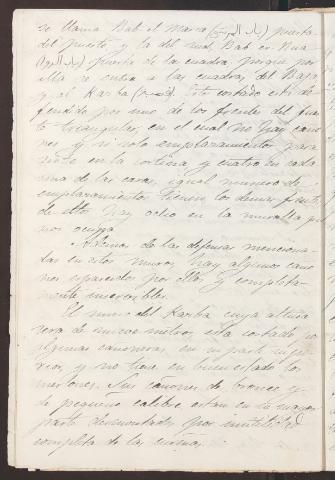 se llama Bab el Marsa (باب المرسى) puerta
del puerto, y la del sud, Bab er-Rua
(باب الروا) puerta de la cuadra porque por
ella se entra a las cuadras del Baja
y al Kasba (قصبة). Este costado está de-
fendido por uno de los frentes del fuer-
te triangular, en el cual no hay caño-
nes y si solo emplazamientos para
nueve en la cortina y cuatro en cada
una de las caras, igual numero de
emplazamientos tienen los demas frentes
de ellos hay ocho en la muralla que
nos ocupa.
Ademas de las defensas menciona-
das en estos muros hay algunos caño-
nes esparcidos por ellos y completa-
mente inservibles.
El muro del Kasba cuya altura
sera de nueve metros, esta cortado por
algunas cañoneras en su parte supe-
rior, y no tiene en buen estado los
merlones. Sus cañones de bronce y
de pequeño calibre estan en su mayor
parte desmontados por inutilidad
completa de las cureñas.